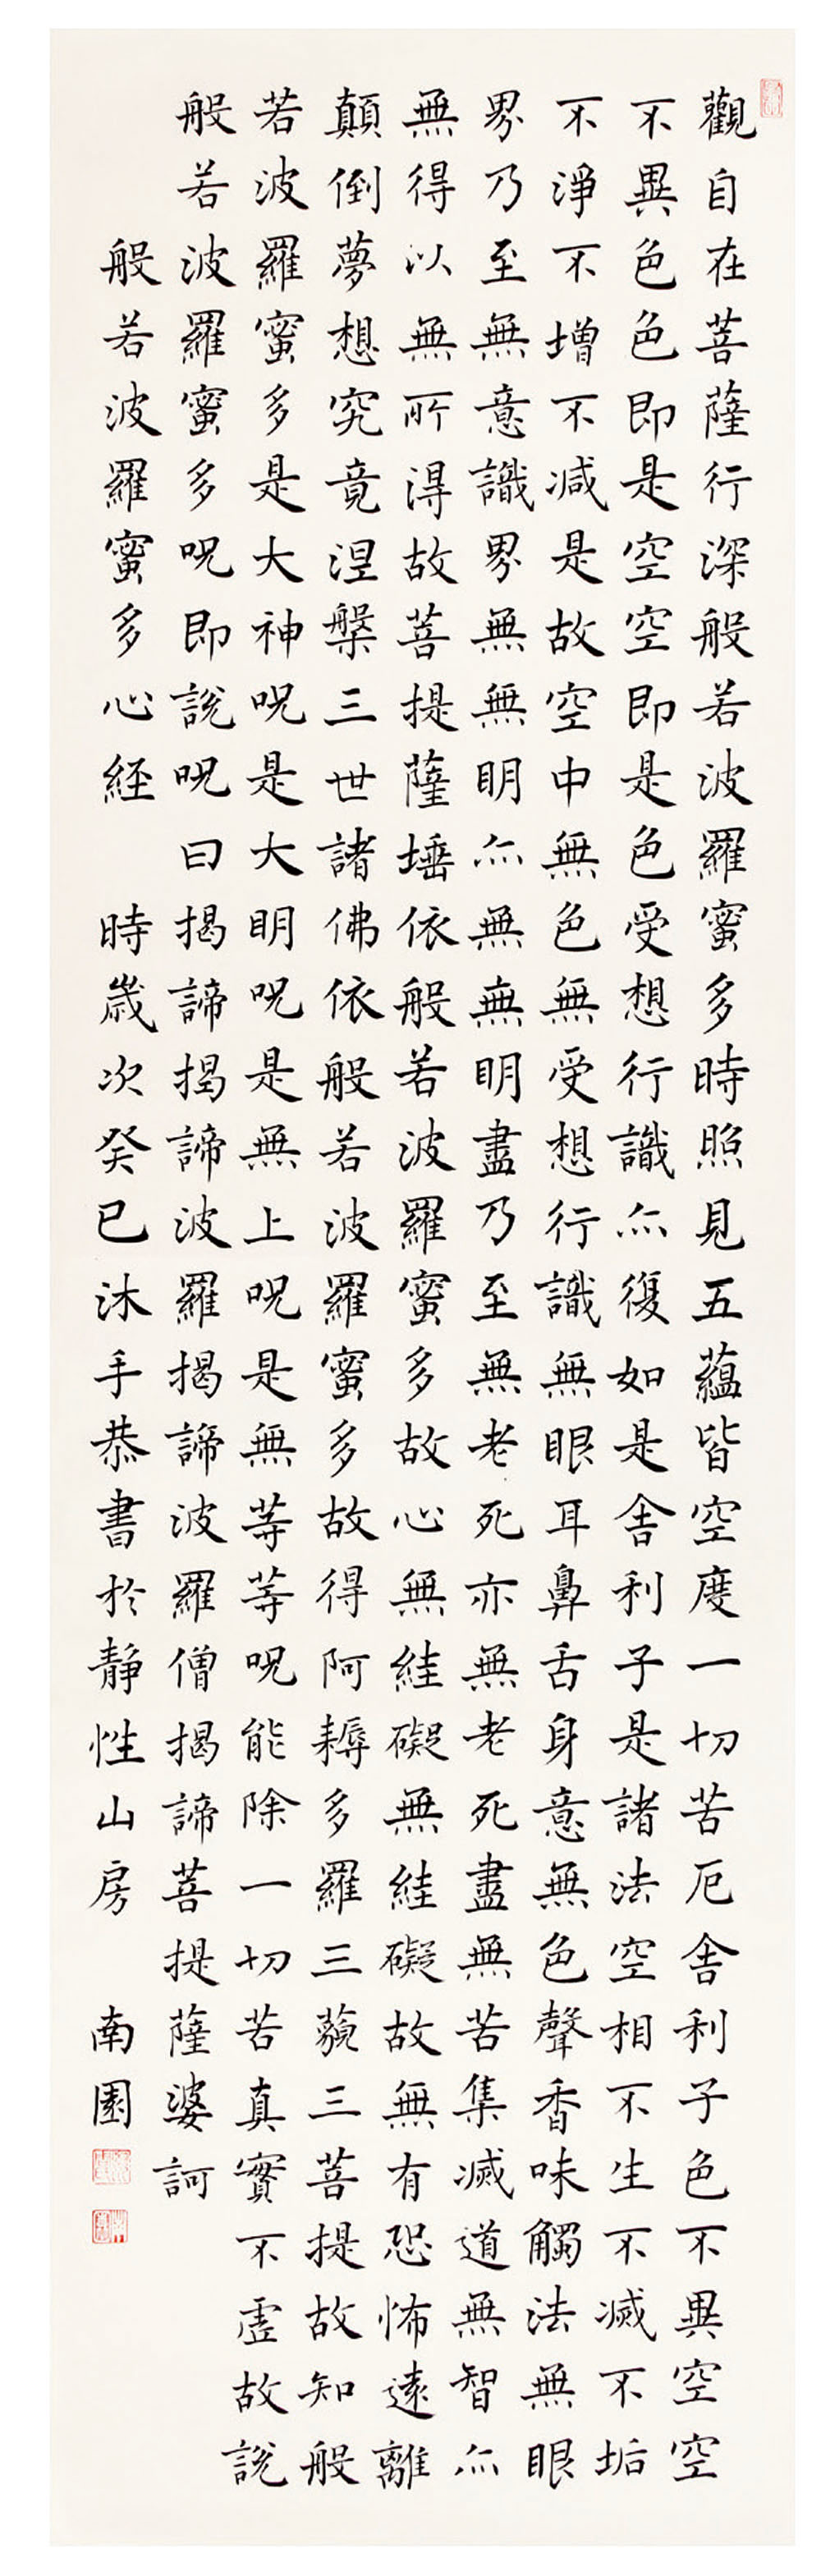 觀自在菩薩行深般若波羅蜜多時照見五蘊皆空度一切苦厄舍利子色不異空空
不異色色即是空空即是色受想行識亦復如是舍利子是諸法空相不生不滅不垢
不淨不增不減是故空中無色無受想行識無眼耳鼻舌身意無色聲香味觸法無眼
界乃至無意識界無無明亦無無明盡乃至無老死亦無老死盡無苦集滅道無智亦
無得以無所得故菩提薩埵依般若波羅蜜多故心無絓礙無絓礙故無有恐怖遠離
顛倒夢想究竟涅槃三世諸佛依般若波羅蜜多故得阿耨多羅三藐三菩提故知般
若波羅蜜多是大神呪是大明呪是無上呪是無等等呪能除一切苦真實不虛故說
般若波羅蜜多呪即說呪曰揭諦揭諦波羅揭諦波羅僧揭諦菩提薩婆訶
般若波羅蜜多心経 時歲次癸巳沐手恭書於靜性山房 南園